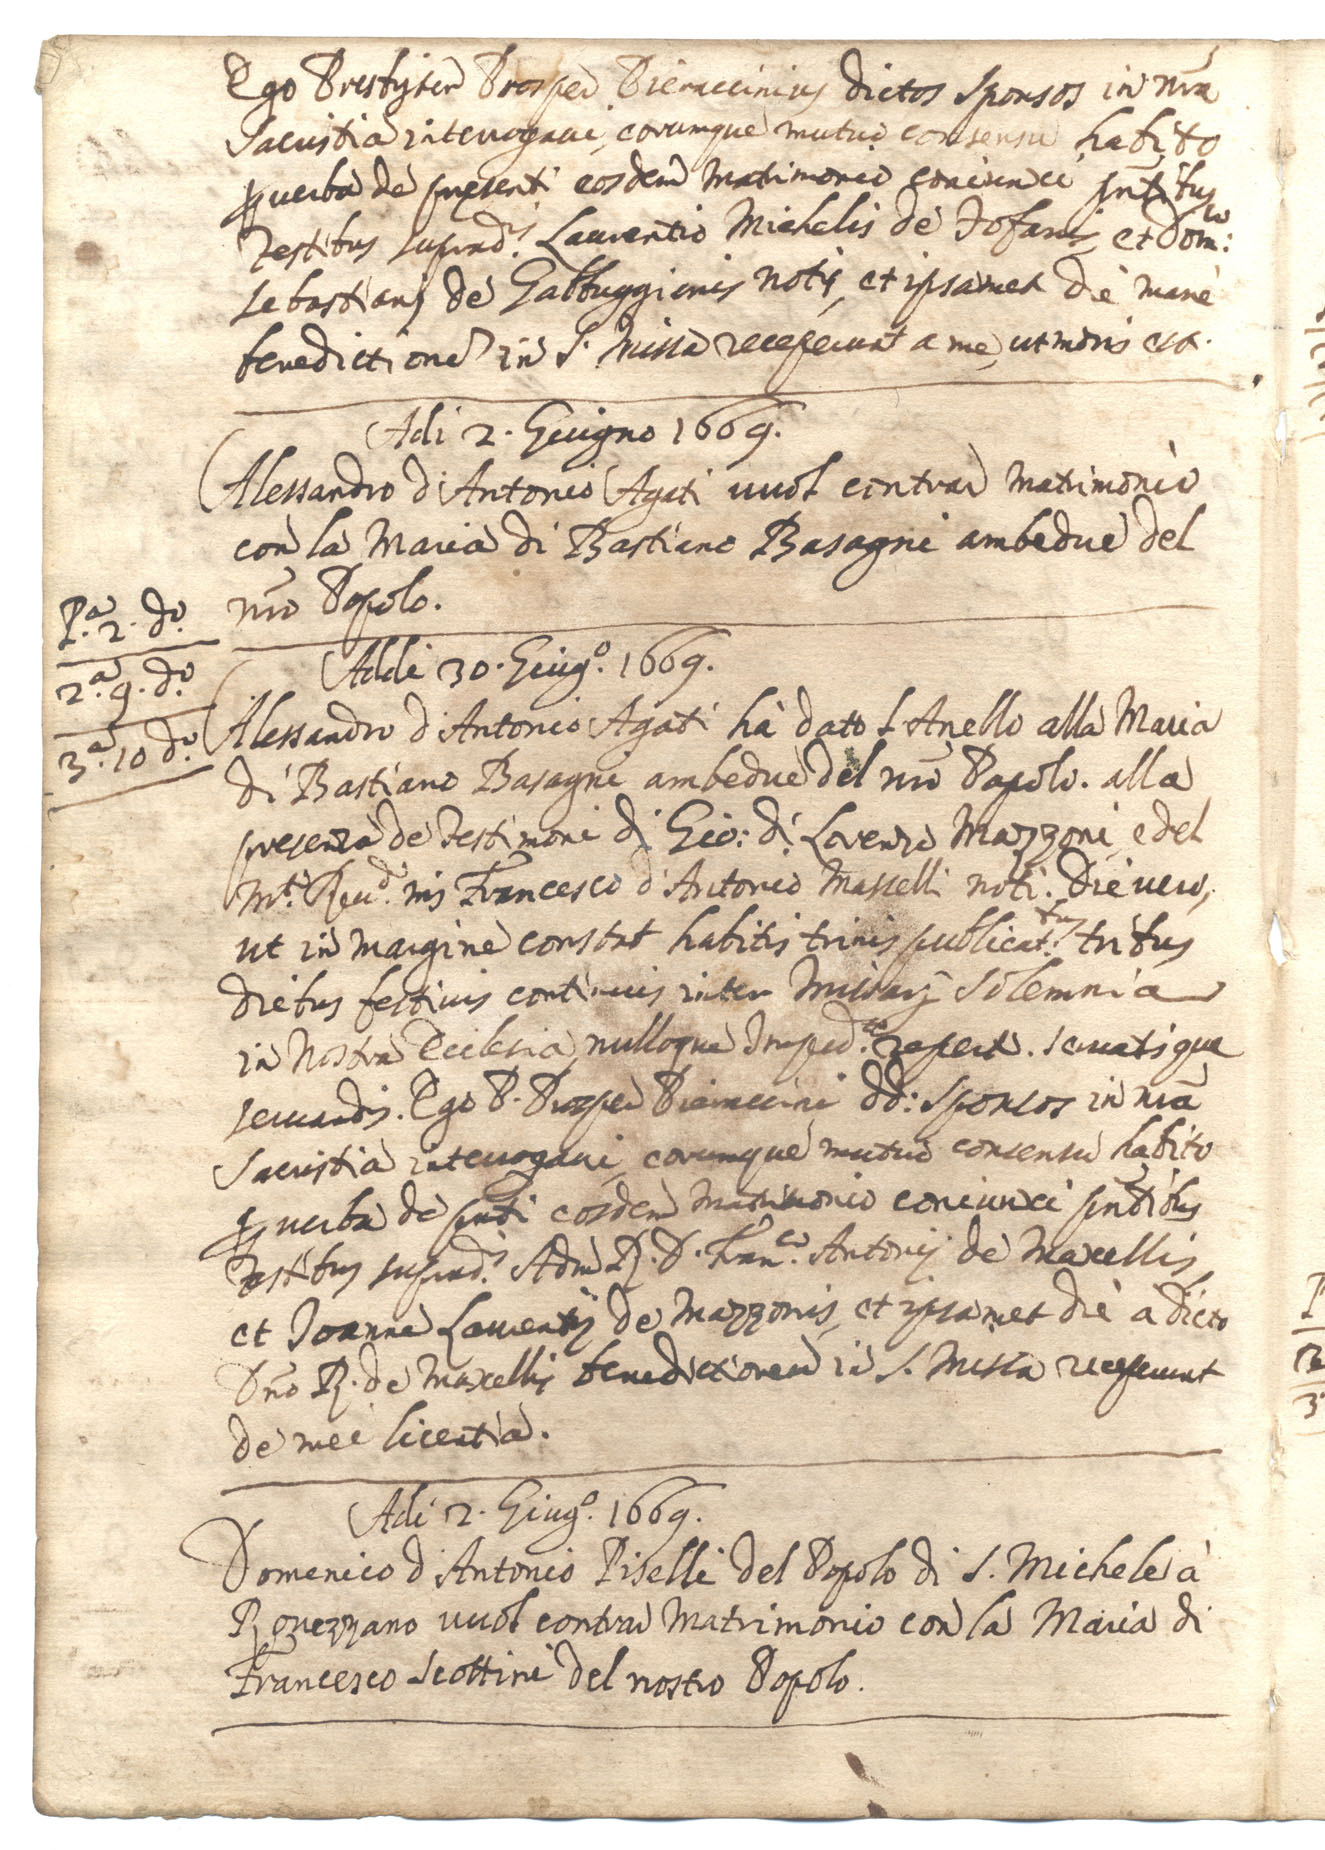 Ego Presbyter Prosper Pieraccinius dictos sponsos in nrã
sacristia interrogaui, eorumque mutuo consensu habito
p uerba de presenti eosdem Matrimonio coniunxi pntibus
Testibus suprad.is Laurentio Michelis de Tofanis, et Dom:co
Sebastiani de Gabbuggianis notis, et ipsamet die mane
benedictione in S. Missa receperunt a me, ut moris est.
Adi 2. Giugno 1669.
Alessandro d'Antonio Agati uuol contrar matrimonio
con la Maria di Bastiano Basagni ambedue del
nrõ Popolo.
P.a 2. do.
2.a 9. do.
3.a 10 do.
Addi 30. Giug.o 1669.
Alessandro d'Antonio Agati hà dato l'Anello alla Maria
di Bastiano Basagni ambedue del nrõ Popolo. alla
presenza de Testimoni di Gio: di Lorenzo Mazzoni, e del
M.to Reud. ms Francesco d'Antonio Masselli noti. Die uero,
ut in margine constat habitis trinis publicat.bus tribus
diebus festiuis continuis inter Missarũ solemnia
in Nostra Ecclesia, nulloque Imped.to repert. seruatisque
seruandis. Ego P. Prosper Pieraccini dd: sponsos in nrã
sacristia interrogaui, eorumque mutuo consensu habito
p uerba de pnti eosdem Matrimonio coniunxi pntibus
Testibus suprad.is Adm R. D. Fran.co Antonij de Maxellis,
et Joanne Laurentij de Mazzonis, et ipsamet die a dicto
Dño R. de Maxellis benedictionem in S. Missa receperunt
de mei licentia.
Adi 2. Giug.o 1669.
Domenico d'Antonio Piselli del Popolo di S. Michele à
Rouezzano uuol contrar Matrimonio con la Maria di
Francesco Scottini del nostro Popolo.